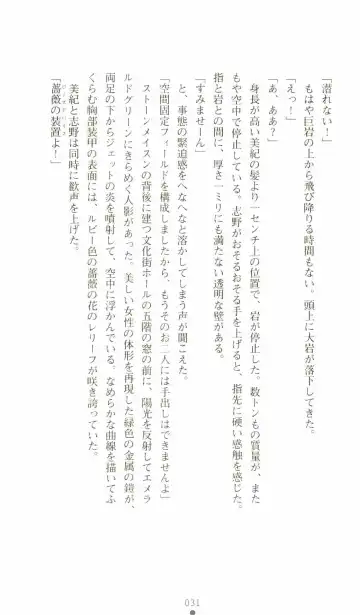 「潰れない！」
　もはや巨岩の上から飛び降りる時間もない。頭上に大岩が落下してきた。
「えっ！」
「あ、ああ？」
　身長が高い美紀の髪より一センチ上の位置で、岩が停止した。数トンもの質量が、また
もや空中で停止している。志野がおそるおそる手を上げると、指先に硬い感触を感じた。
指と岩との間に、厚さ一ミリにも満たない透明な壁がある。
「すみませーん」
　と、事態の緊迫感をへなへなと溶かしてしまう声が聞こえた。
「空間固定フィールドを構成しましたから、もうそのお二人には手出しはできませんよ」
　ストーンメイスンの背後に建つ文化街ホールの五階の窓の前に、陽光を反射してエメラ
ルドグリーンにきらめく人影があった。美しい女性の体形を再現した緑色の金属の鎧が、
両足の下からジェットの炎を噴射して、空中に浮かんでいる。なめらかな曲線を描いてふ
くらむ胸部装甲の表面には、ルビー色の薔薇の花のレリーフが咲き誇っていた。
　美紀と志野は同時に歓声を上げた。
「薔薇の装置よ！」
031